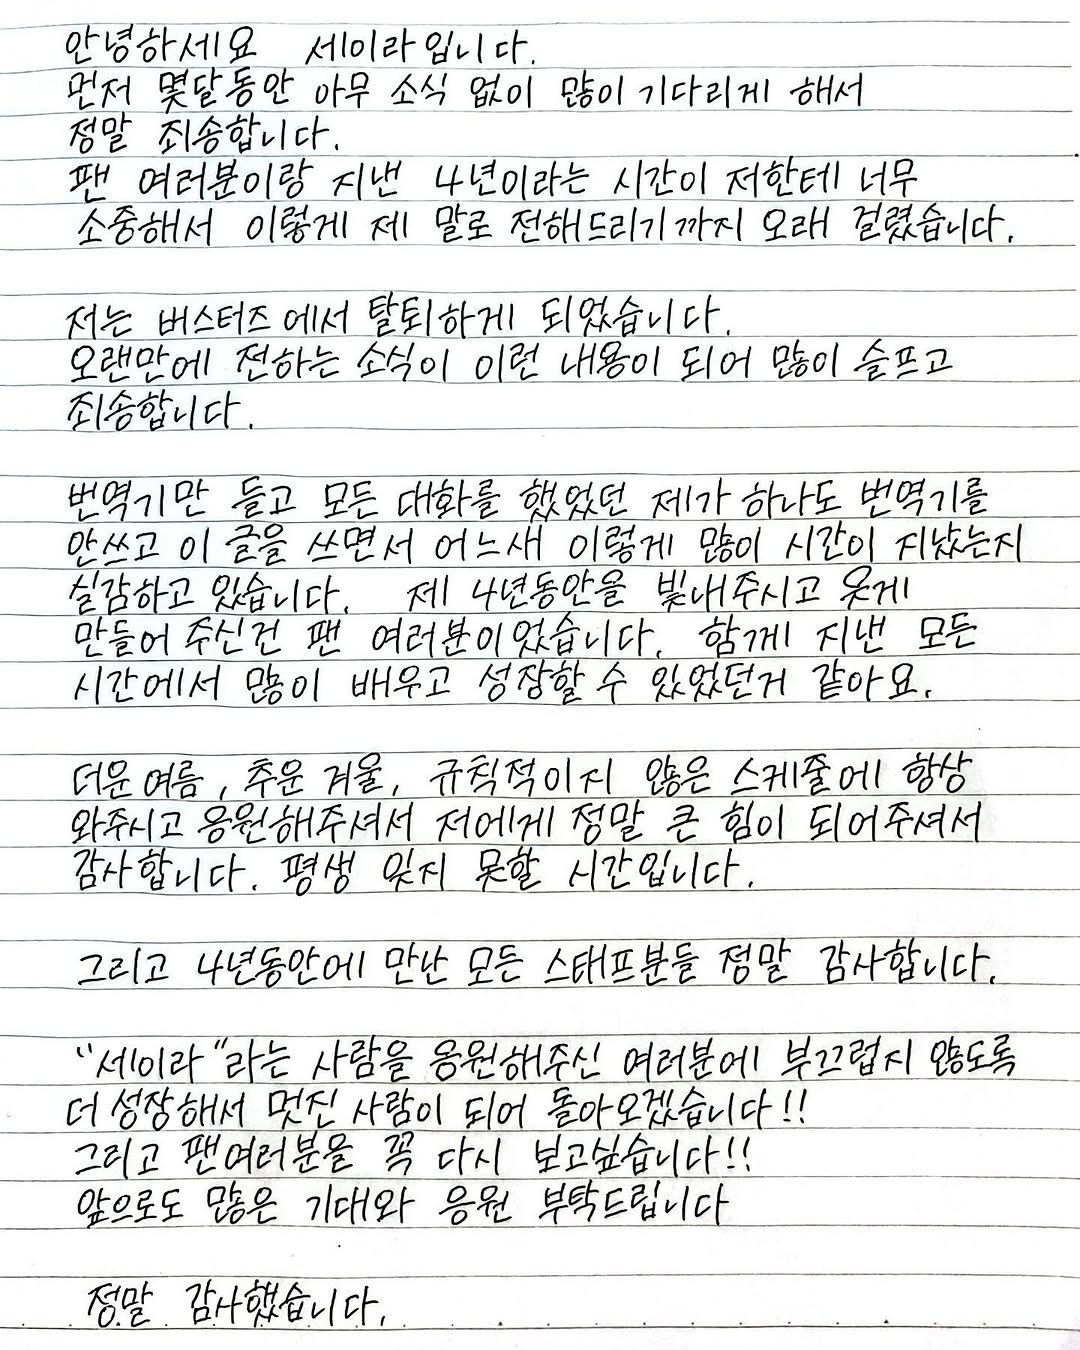 안녕하세요 세이라입니다.
먼저 몇달동안 아무 소식 없이 많이 기다리게 해서
정말 죄송합니다.
팬 여러분이랑 지낸 4년이라는 시간이 저한테 너무
소중해서 이렇게 제 말로 전해드리기까지 오래 걸렸습니다.
저는 버스터즈에서 탈퇴하게 되었습니다.
오랜만에 전하는 소식이 이런 내용이 되어 많이 슬프고
죄송합니다.
번역기만 들고 모든 대화를 했었던 제가 하나도 번역기를
안쓰고 이 글을 쓰면서 어느새 이렇게 많이 시간이 지났는지
실감하고 있습니다. 제 4년동안을 빛내주시고 옷게
만들어 주신건 팬 여러분이었습니다. 함께 지낸 모든
시간에서 많이 배우고 성장할 수 있었던거 같아요.
더운 여름, 추운 겨울, 규칙적이지 않은 스케줄에 항상
와주시고 응원해주셔서 저에게 정말 큰 힘이 되어주셔서
감사합니다. 평생 잊지 못할 시간입니다.
그리고 4년동안에 만난 모든 스태프분들 정말 감사합니다.
"세이라"라는 사람을 응원해주신 여러분에 부끄럽지 않도록
더 성장해서 멋진 사람이 되어 돌아오겠습니다!!
그리고 팬여러분을 꼭 다시 보고싶습니다!!
앞으로도 많은 기대와 응원 부탁드립니다
정말 감사했습니다.